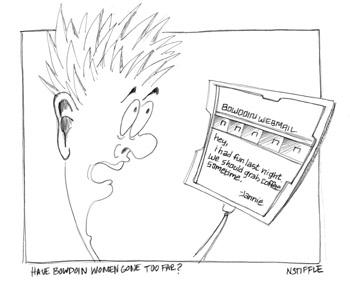 BOWDOIN WEBMAIL
n n n n n
Hey,
i had fun last night
we should grab coffee
sometime.
-Jannie
HAVE BOWDOIN WOMEN GONE TOO FAR?
N.STIFFLE